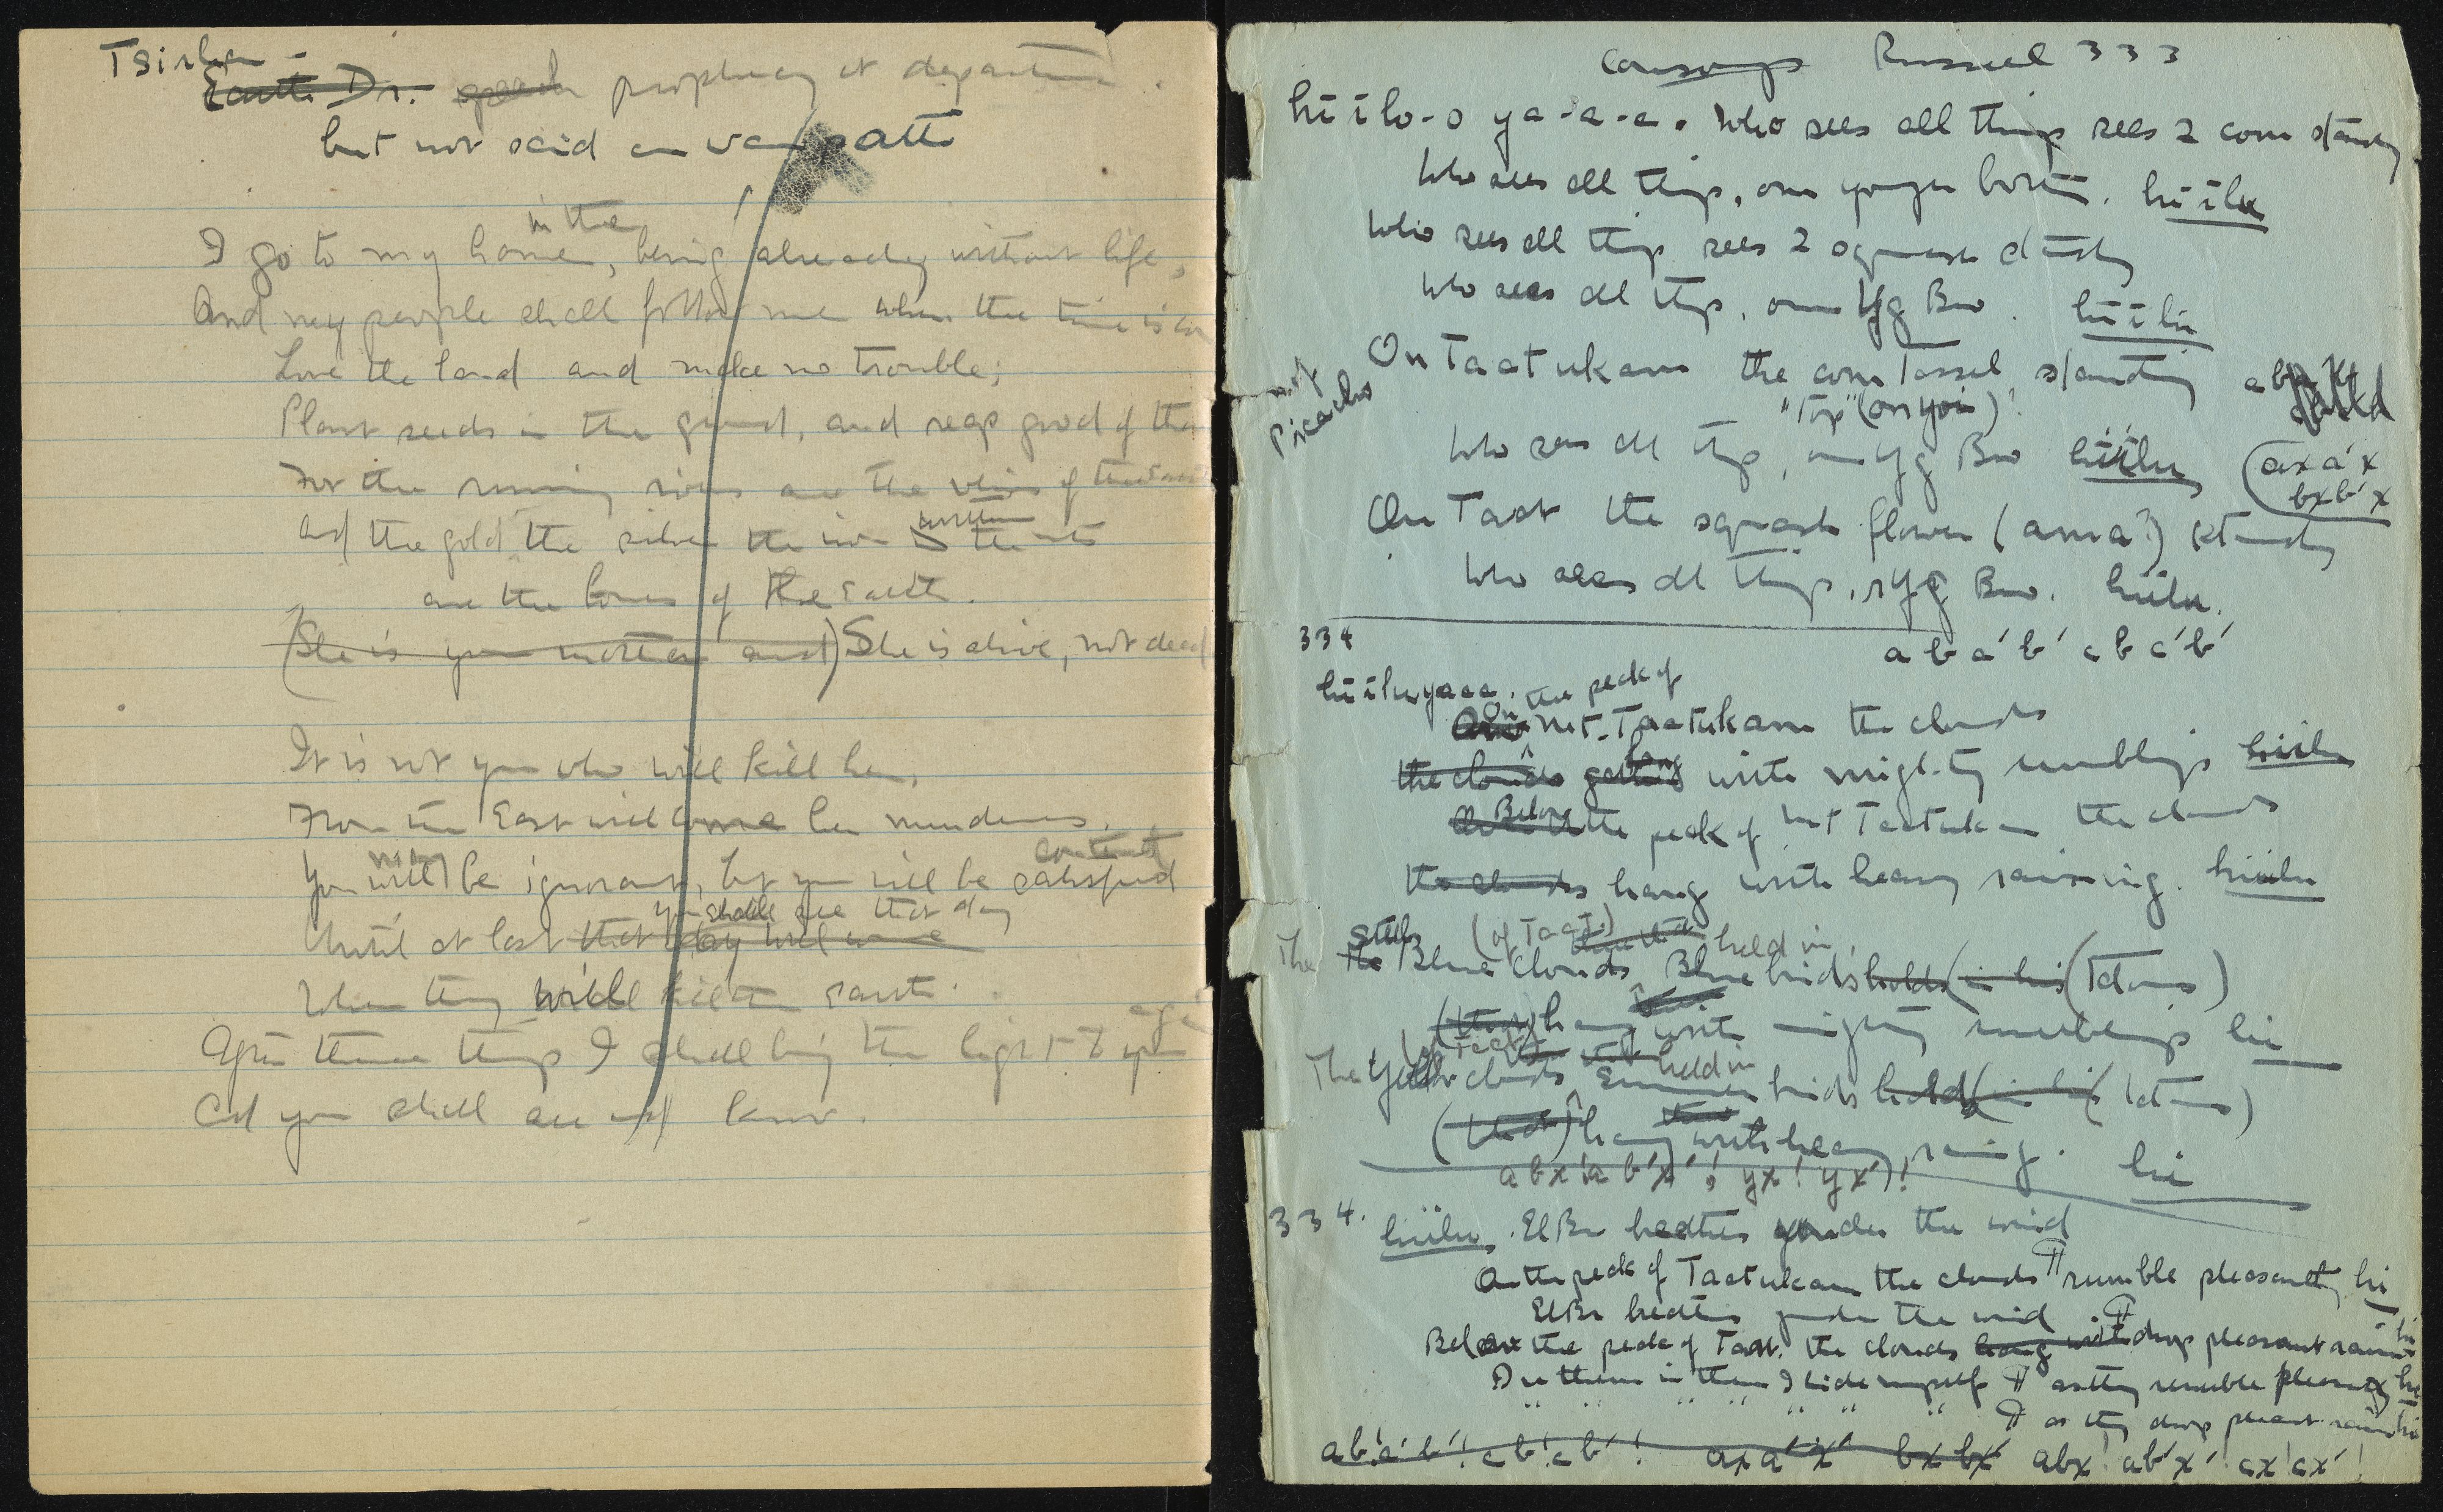 Earth Dr. speech prophecy at departure.
but not said
in the
I go to my home, being already without life,
And my people shall follow me when the time is
Love the land and make no trouble;
Plant seeds in the ground, and reap good of
For the running rivers are the veins of the
and the gold the silver the iron
are the bones of the earth.
(She is your mother and) She is alive, not dead
It is not you who will kill her,
From the East will come her murderers.
not content
You will be ignorant, but you will be satisfied
you shall see that day
Until at last that day will come
When they will kill the earth.
After these things I shall bring the light to you
And you shall see and know.
Corn songs Russell 333
hi ilo-o ya-a-a. Who sees all things sees 2 corn standing
Who sees all things, our younger brother. hi ilu
Who sees all things sees 2 squash standing
Who sees all things, our Yg Bro. hi ilu
On Taatukam the corn tassel standing
mt
Picacho
"top" (or you)
Who sees all things, our Yg Bro hiilu
(axa'x
bxb'x
On Taat the squash flower (ama?) standing
Who sees all things, Yg Bro. hiilu.
a b a' b' c b c' b'
334
hi iluyaaa. On the peak of
Mt. Taatukam the clouds
the clouds hang with mighty rumblings hiilu
Below the peak of Mt Taatukam the clouds
the clouds hang with heavy raining. hiilu
(of Taat.) held in
The Blue clouds Blue bird's holds (in his) (talons)
(that) hang with mighty rumblings hi
held in
The Yellow clouds Summer birds holds (in his) (talons)
(that) hang with heavy raining. hi
abx!a b'x'! yx! yx'!
334. hiilu. ElBr breathes yonder the wind
On the peak of Taatukam the clouds rumble pleasantly hi
ElBr breathes yonder the wind
Below the peak of Taat. the clouds hang with drop pleasant rain hi
In them in them I hide myself as they rumble pleasantly hi
" " " " " " " as they drop pleasant rain hi
ab!a'b'! cb!cb'! axa'x' bxbx' abx! ab'x'! cx!cx'!